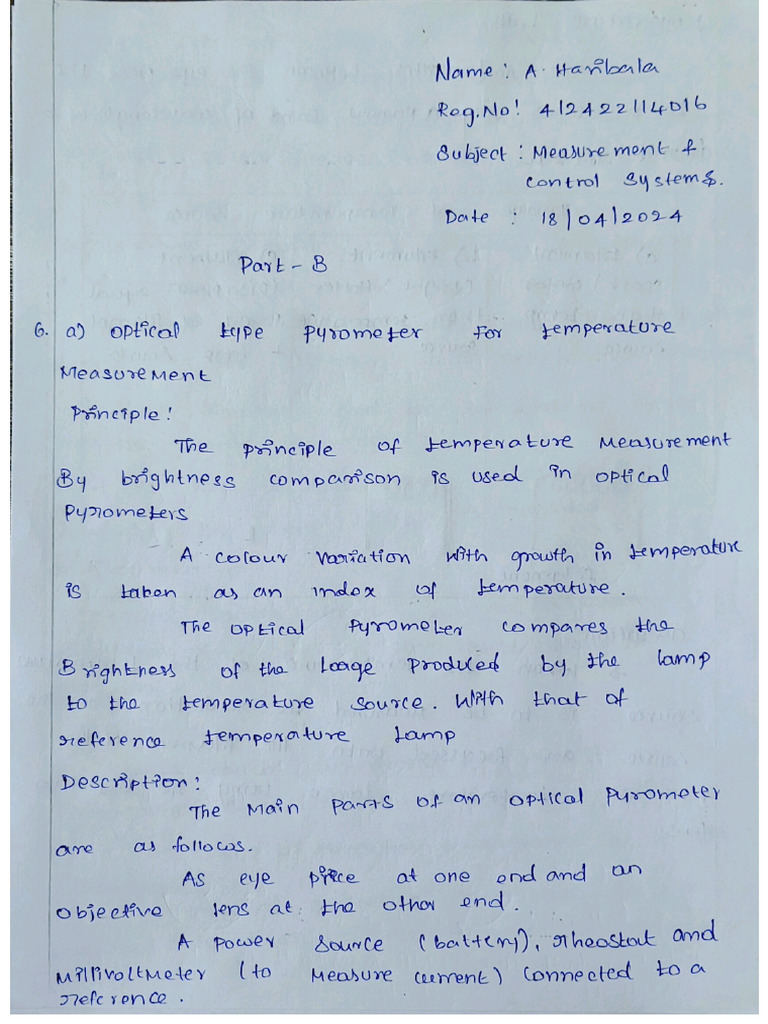 Name : A. Haribala
Reg.No : 412422114016
Subject : Measurement &
control systems.
Date : 18/04/2024
Part - B
6. a) optical type pyrometer for temperature
Measurement
Principle :
The principle of temperature Measurement
By brightness comparison is used in optical
Pyrometers
A colour variation with growth in temperature
is taken as an index of temperature.
The optical Pyrometer compares the
Brightness of the Image produced by the lamp
to the temperature source. With that of
reference temperature lamp
Description :
The Main parts of an optical Pyrometer
are as follows.
As eye piece at one end and an
objective lens at the other end.
A power source (battery), rheostat and
Millivoltmeter (to measure current) connected to a
reference.